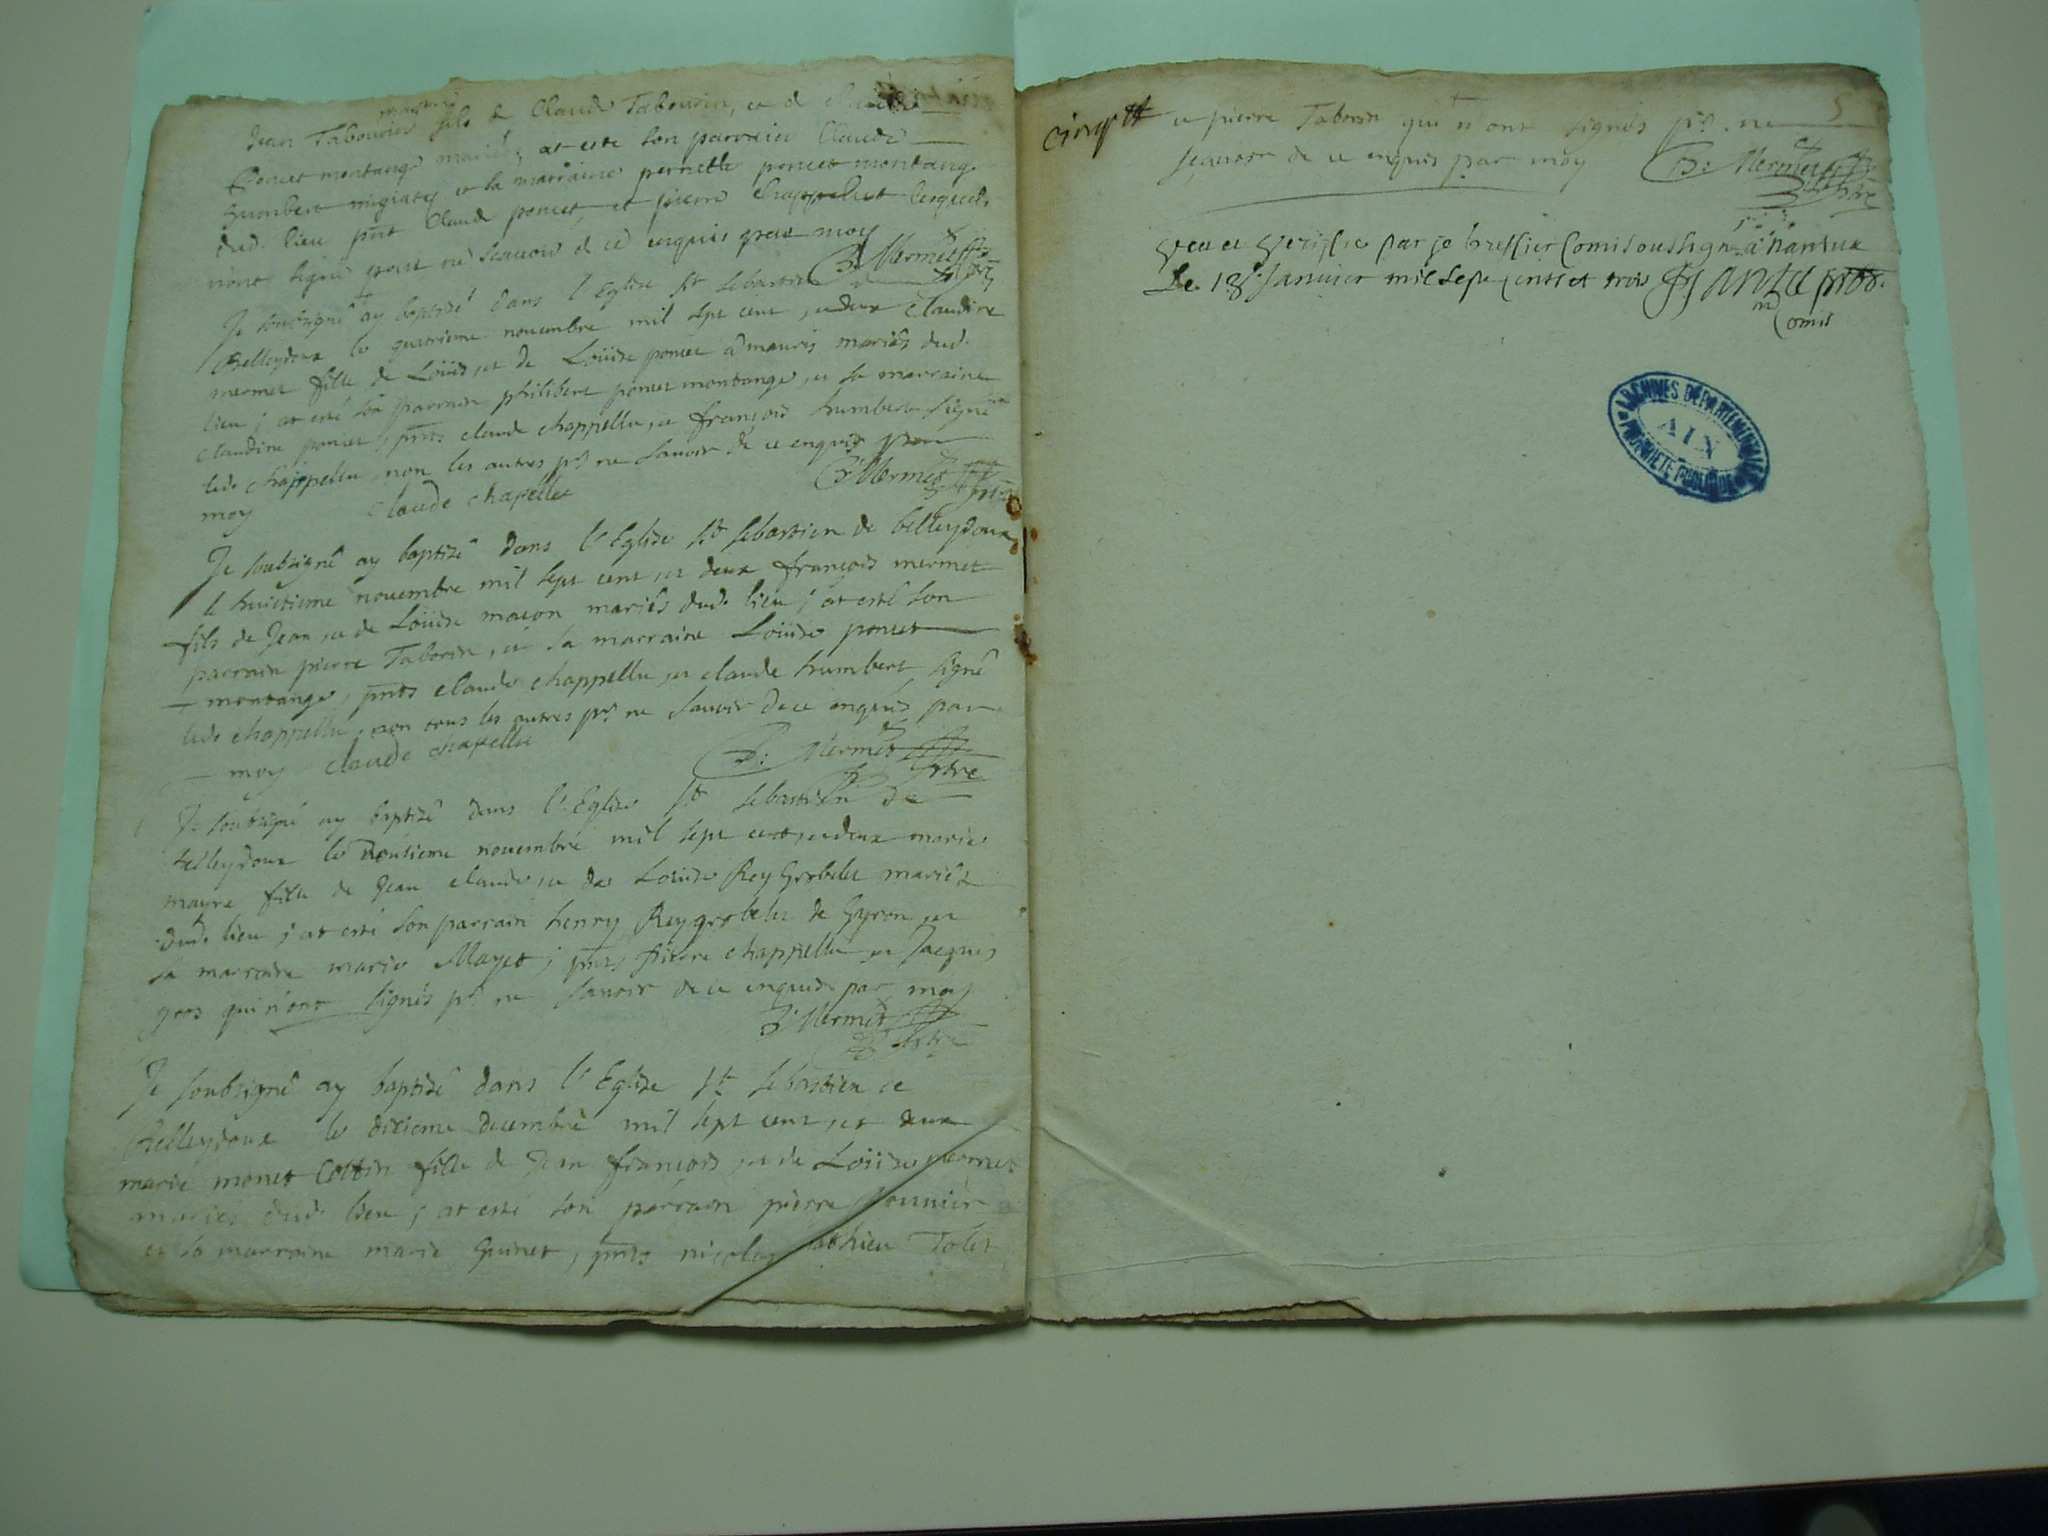 Jean Tabourin fils de Claude Tabourin, et de Claudine
Poncet montange mariés, at este son parrain Claude
humbert migiatex et la marraine pernette poncet montange
dud. lieu pnt Claude poncet, et pierre Chappelut lesquels
n'ont signé pour ne scauoir de ce enquis par moy
B: Mermet ptre
Je soubsigné ay baptisé dans l'Eglise St sebastien de
Belleydoux le quatrieme nouembre mil sept cent et deux Claudine
mermet fille de Loüis, et de Loüise poncet a mauris mariés dud.
lieu; at esté son parrain philibert poncet montange, et sa marraine
claudine poncet, pnts claude chappellu, et françois humbert signé
led. chappellu, non les autres pr ne sauoir de ce enquis par
moy claude chapellu B: Mermet ptre
Je soubsigné ay baptisé dans l'Eglise St sebastien de belleydoux
le huictieme nouembre mil sept cent et deux françois mermet
fils de Jean, et de Loüise maron mariés dud. lieu; at esté son
parrain pierre Taborin, et sa marraine Loüise poncet
montange, pnts claude chappellu, et claude humbert, signé
led. chappellu, non tous les autres pr ne sauoir de ce enquis par
moy claude chapellu B: Mermet ptre
Je soubsigné ay baptisé dans l'Eglise St sebastien de
belleydoux le nouembre mil sept cent, et deux marie
mayre fille de Jean claude, et de Loüise Rey Grobelet mariés
dud. lieu; at esté son parrain henry Reygrobelet de Gyron, et
sa marraine marie Mayet; pnts pierre chappellu, et Jacques
gros qui n'ont signés pr ne sauoir de ce enquis par moy
B: Mermet ptre
Je soubsigné ay baptisé dans l'Eglise St sebastien de
Belleydoux le dixieme decembre mil sept cent, et deux
marie monet Cottin fille de Jean françois, et de Loüise mermet
mariés dud. lieu; at esté son parrain pierre
et sa marraine marie Guinet, pnts nicolas mathieu Tolet
5
et pierre Taborin qui n'ont signés pr. ne
sçauoir de ce enquis par moy B: Mermet ptre
Veu et Verifié par je greffier Comis soussigné à Nantua
Le 18e Janvier mil sept cents et trois
Comis
ARCHIVES DÉPARTEMENTALES
AIN
PROPRIÉTÉ PUBLIQUE